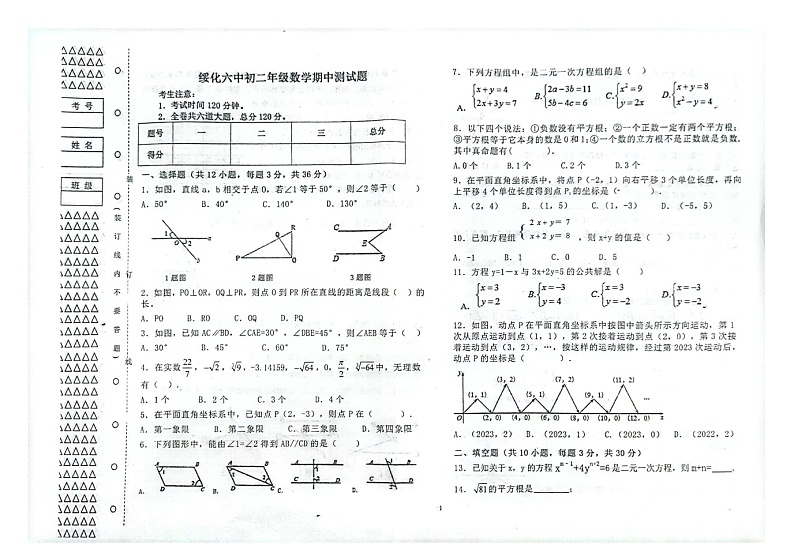 考 号
姓 名
班 级
（装 订 线 内 不 要 答 题）
装
订
线
绥化六中初二年级数学期中测试题
考生注意：
1. 考试时间 120 分钟。
2. 全卷共六道大题，总分 120 分。
题号 一 二 三 总分
得分
一、选择题（共 12 小题，每题 3 分，共 36 分）
1. 如图，直线 a、b 相交于点 O，若∠1 等于 50°，则∠2 等于（ ）
A. 50° B. 40° C. 140° D. 130°
1 a O 2 b
P Q R O
C A E B D
1 题图 2 题图 3 题图
2. 如图，PO⊥OR，OQ⊥PR，则点 O 到 PR 所在直线的距离是线段（ ）的
长。
A. PO B. RO C. OQ D. PQ
3. 如图，已知 AC∥BD，∠CAE=30°，∠DBE=45°，则∠AEB 等于（ ）
A. 30° B. 45° C. 60° D. 75°
4. 在实数 22/7，-√2，∛9，-3.14159，-√64，0，π/2，∛-64 中，无理数
有（ ）.
A. 1 个 B. 2 个 C. 3 个 D. 4 个
5. 在平面直角坐标系中，已知点 P（2，-3），则点 P 在（ ）.
A. 第一象限 B. 第二象限 C. 第三象限 D. 第四象限
6. 下列图形中，能由∠1=∠2 得到 AB//CD 的是（ ）
A. B. C. D.
7. 下列方程组中，是二元一次方程组的是（ ）
A. {x+y=4 2x+3y=7 B. {2a-3b=11 5b-4c=6 C. {x²=9 y=2x D. {x+y=8 x²-y=4
8. 以下四个说法：①负数没有平方根；②一个正数一定有两个平方根；
③平方根等于它本身的数是 0 和 1；④一个数的立方根不是正数就是负数.
其中真命题有（ ）.
A. 0 个 B. 1 个 C. 2 个 D. 3 个
9. 在平面直角坐标系中，将点 P（-2，1）向右平移 3 个单位长度，再向
上平移 4 个单位长度得到点 P₁的坐标是（ ）.
A. （2，4） B. （1，5） C. （1，-3） D. （-5，5）
10. 已知方程组 {2x+y=7 x+2y=8 ，则 x+y 的值是（ ）
A. -1 B. 1 C. 0 D. 5
11. 方程 y=1-x 与 3x+2y=5 的公共解是（ ）
A. {x=3 y=2 B. {x=-3 y=4 C. {x=3 y=-2 D. {x=-3 y=-2
12. 如图，动点 P 在平面直角坐标系中按图中箭头所示方向运动，第 1
次从原点运动到点（1，1），第 2 次接着运动到点（2，0），第 3 次接
着运动到点（3，2），…，按这样的运动规律，经过第 2023 次运动后，
动点 P 的坐标是（ ）.
y
(3, 2) (7, 2) (11, 2)
(1, 1) (5, 1) (9, 1) …
O (2, 0) (4, 0) (6, 0) (8, 0) (10, 0) (12, 0) x
A. （2023，2） B. （2023，1） C. （2023，0） D. （2022，2）
二、填空题（共 10 小题，每题 3 分，共 30 分）
13. 已知关于 x，y 的方程 xᵐ⁻¹+4yⁿ⁺²=6 是二元一次方程，则 m+n=____.
14. √81 的平方根是______；
1